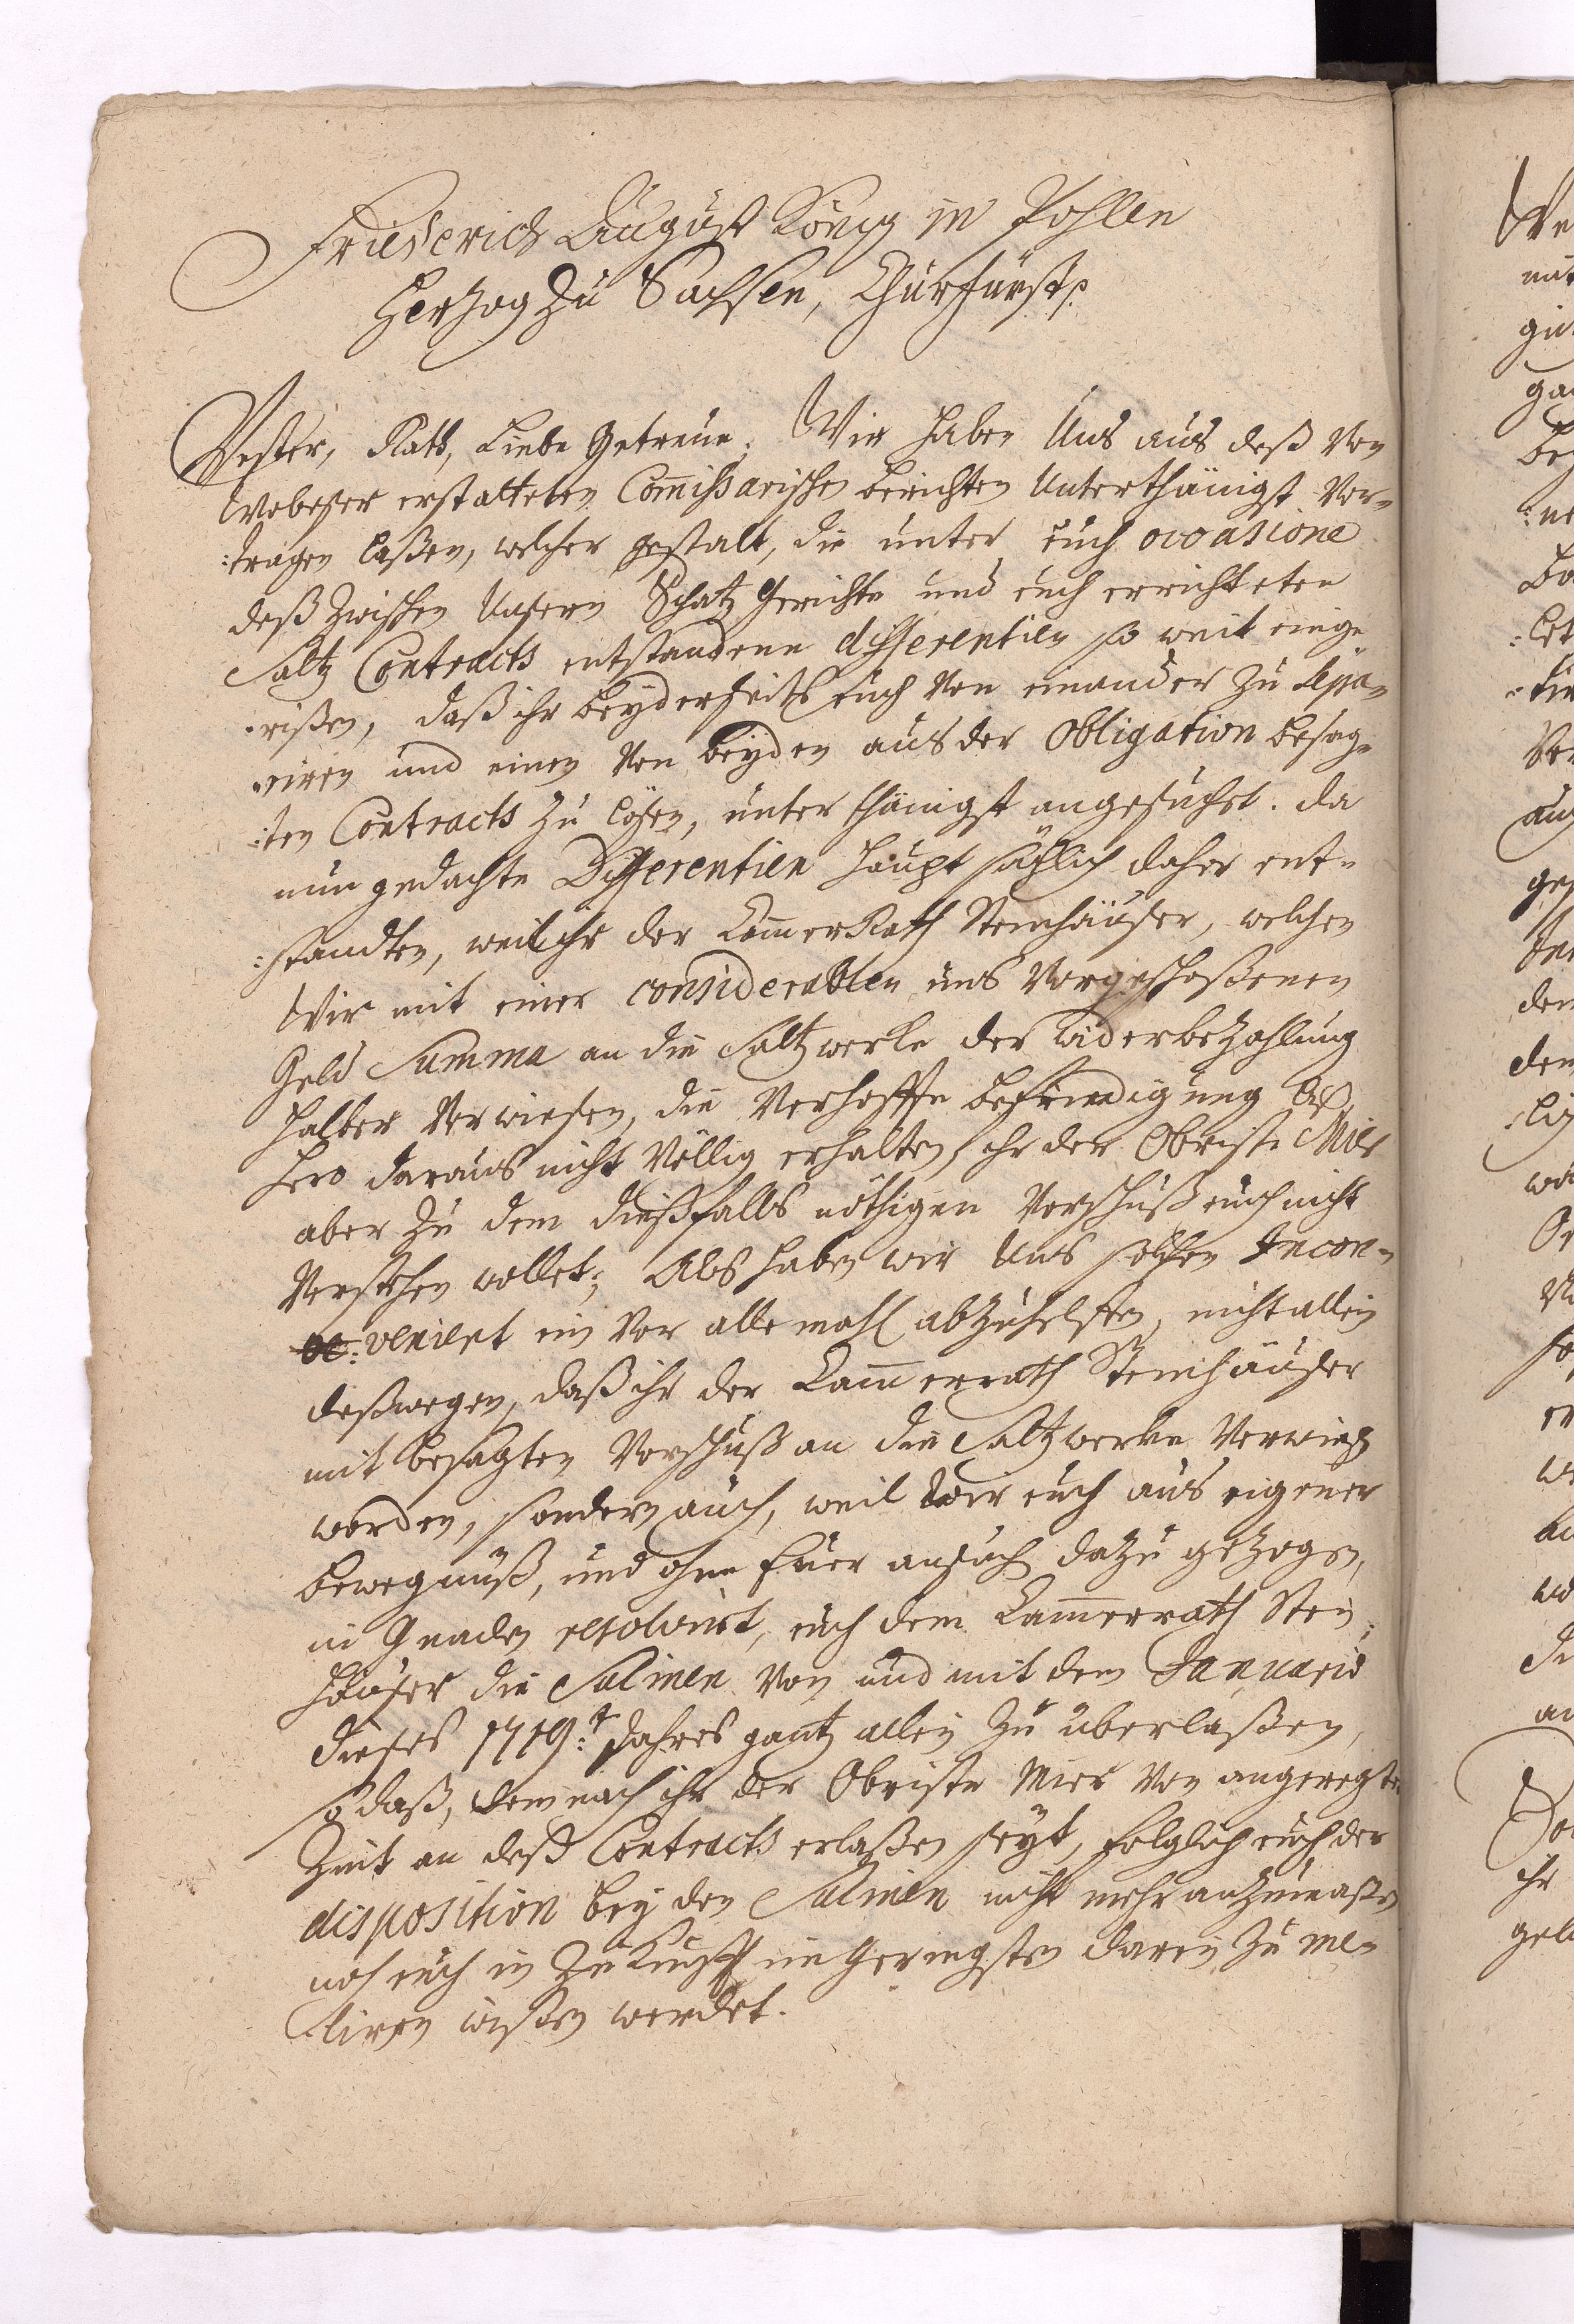 Friederich August König in Pohlen
Hertzog zu Sachsen, Churfürst p.
Vester, Rath, Liebe Getreue. Wir haben Uns aus deß von
Wobeser erstatteten Commissarischen berichten Unterthänigst Vor-
:tragen laßen, welcher gestalt, die unter euch occasione
deß zwischen Unsern Schatz Gerichte und euch errichteten
Saltz Contracts entstandene differentien so weit einge-
:rißen, daß ihr beyderseits euch von einander zu sepa-
:riren und einen von beyden aus der Obligation besag-
:ten Contracts zu lösen, unterthänigst angesuchet. Da
nun gedachte Differentien hauptsächlich daher ent-
:standten, weil ihr der CammerRath Steinhäuser, welchen
Wir mit einer considerablen uns Vorgeschoßenen
Geld Summa an die Saltzwerke der Widerbezahlung
halber verwiesen, die Verhoffte befriedigung bis
hero daraus nicht Völlig erhalten, ihr der Obriste Mier
aber zu dem dießfalls nöthigen Vorschuß euch nicht
Verstehen wollet; Als haben wir Uns solchen Incon-
:venient ein vor allemahl abzuhelffen, nicht allein
deßwegen, daß ihr der Cammerrath Steinhäuser
mit besagten Vorschuß an die Saltzwerke Verwiesen
worden, sondern auch, weil wir euch aus eigener
bewegnüß, und ohne Euer ansuchen dazu gezogen,
in Gnaden resolvirt, euch dem Cammerrath Stein-
häuser die Salinen von und mit dem Januario
dieses 1719.t Jahres gantz allein zu überlaßen,
so daß, demnach ihr der Obriste Mier von angeregter
Zeit an deß Contracts erlaßen seyt, folglich euch der
disposition bey den Salinen nicht mehr anzumaßen
noch euch in Zukunfft im Geringsten darein zu me-
:liren wißen werdet.